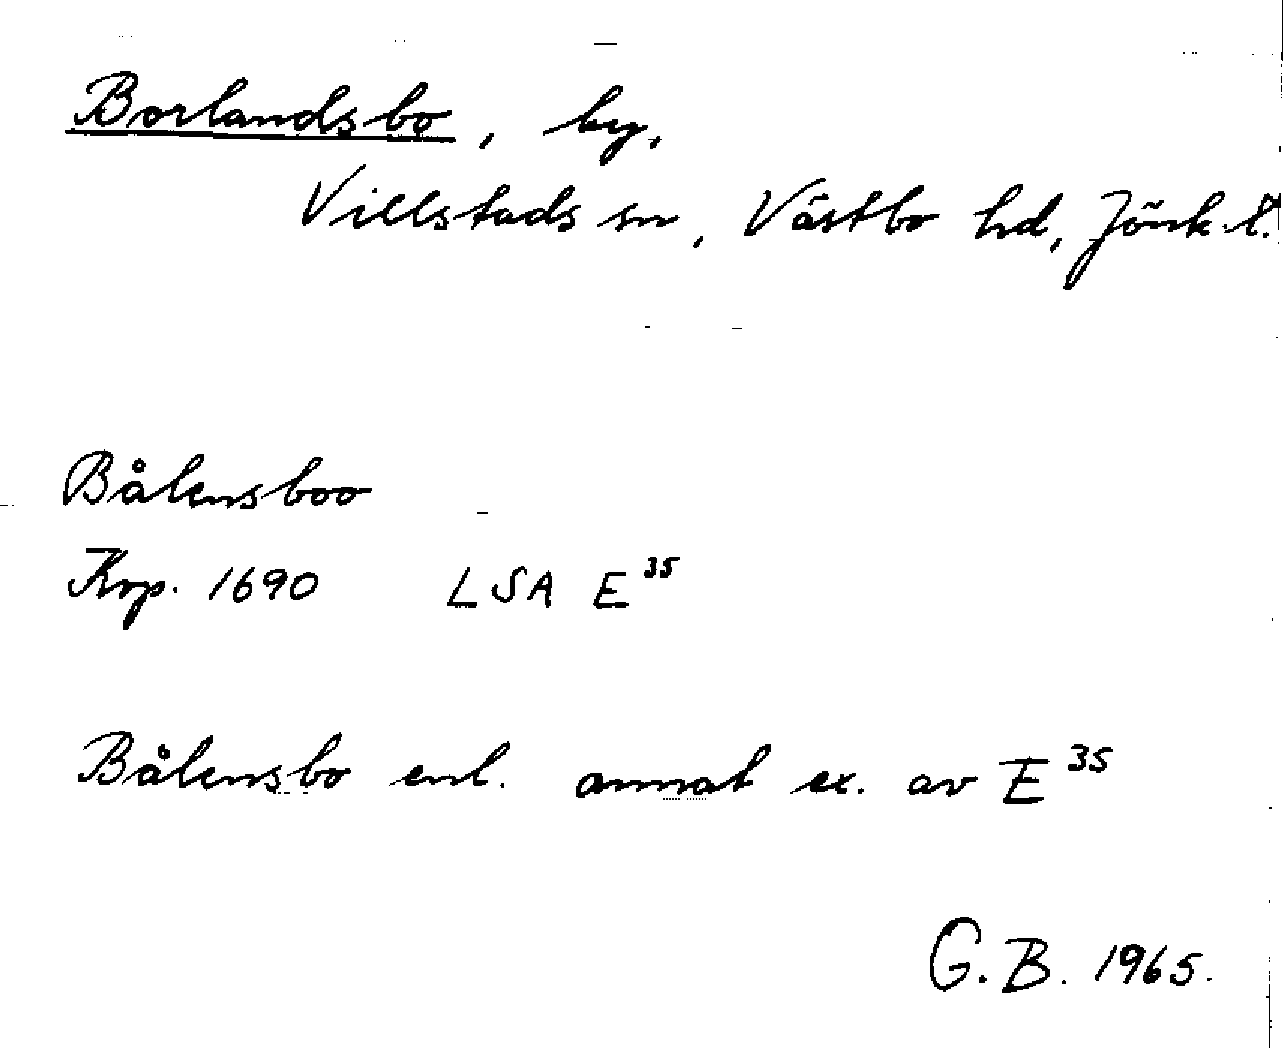 Borlandsbo, by,
Villstads sn, Västbo hd, Jönk. l.
Bålensboo
Krp. 1690 LSA E³⁵
Bålensbo enl. annat ex. av E³⁵
G. B. 1965.